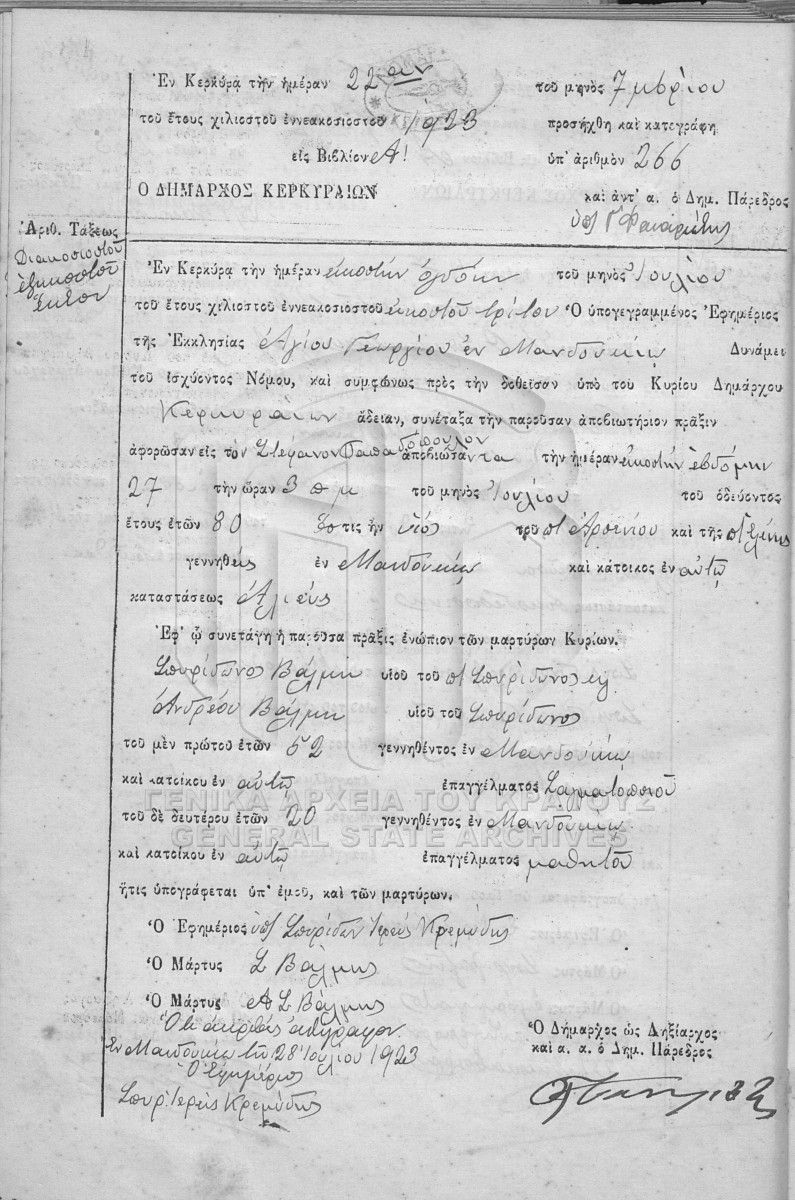 Ἐν Κερκύρᾳ τὴν ἡμέραν 22αν τοῦ μηνὸς 7μβρίου
τοῦ ἔτους χιλιοστοῦ ἐννεακοσιοστοῦ 1923 προσήχθη καὶ κατεγράφη
εἰς Βιβλίον Α! ὑπ' ἀριθμὸν 266
Ὁ ΔΗΜΑΡΧΟΣ ΚΕΡΚΥΡΑΙΩΝ καὶ ἀντ' α. ὁ Δημ. Πάρεδρος
Ἀριθ. Τάξεως
Διακοσιοστοῦ
ἑξηκοστοῦ
ἕκτον
Ἐν Κερκύρᾳ τὴν ἡμέραν εἰκοστὴν ὀγδόην τοῦ μηνὸς Ἰουλίου
τοῦ ἔτους χιλιοστοῦ ἐννεακοσιοστοῦ εἰκοστοῦ τρίτου Ὁ ὑπογεγραμμένος Ἐφημέριος
τῆς Ἐκκλησίας Ἁγίου Γεωργίου ἐν Μανδουκίῳ Δυνάμει
τοῦ ἰσχύοντος Νόμου, καὶ συμφώνως πρὸς τὴν δοθεῖσαν ὑπὸ τοῦ Κυρίου Δημάρχου
Κερκυραίων ἄδειαν, συνέταξα τὴν παροῦσαν ἀποβιωτήριον πρᾶξιν
ἀφορῶσαν εἰς τὸν Στέφανον Παπαδόπουλον ἀποβιώσαντα τὴν ἡμέραν εἰκοστὴν ἑβδόμην
27 τὴν ὥραν 3 π μ τοῦ μηνὸς Ἰουλίου τοῦ ὁδεύοντος
ἔτους ἐτῶν 80 ὅστις ἦν υἱὸς τοῦ π Ἀρσενίου καὶ τῆς π Ἑλένης
γεννηθεὶς ἐν Μανδουκίῳ καὶ κάτοικος ἐν αὐτῷ
καταστάσεως Ἁλιεύς
Ἐφ' ᾧ συνετάγη ἡ παροῦσα πρᾶξις ἐνώπιον τῶν μαρτύρων Κυρίων.
Σπυρίδωνος Βάλμη υἱοῦ τοῦ π Σπυρίδωνος
Ἀνδρέου Βάλμη υἱοῦ τοῦ Σπυρίδωνος
τοῦ μὲν πρώτου ἐτῶν 52 γεννηθέντος ἐν Μανδουκίῳ
καὶ κατοίκου ἐν αὐτῷ ἐπαγγέλματος Σαγματοποιοῦ
ΓΕΝΙΚΑ ΑΡΧΕΙΑ ΤΟΥ ΚΡΑΤΟΥΣ
τοῦ δὲ δευτέρου ἐτῶν 20 γεννηθέντος ἐν Μανδουκίῳ
GENERAL STATE ARCHIVES
καὶ κατοίκου ἐν αὐτῷ ἐπαγγέλματος μαθητοῦ
ἥτις ὑπογράφεται ὑπ' ἐμοῦ, καὶ τῶν μαρτύρων.
Ὁ Ἐφημέριος Σπυρίδων Ἱερεὺς Κρεμύδης
Ὁ Μάρτυς Σ Βάλμης
Ὁ Μάρτυς Α Σ Βάλμης
Ὅτι ἀκριβὲς ἀντίγραφον
Ἐν Μανδουκίῳ τῇ 28 Ἰουλίου 1923
Ὁ Ἐφημέριος
Σπυρ. Ἱερεὺς Κρεμύδης
Ὁ Δήμαρχος ὡς Ληξίαρχος
καὶ α. α. ὁ Δημ. Πάρεδρος